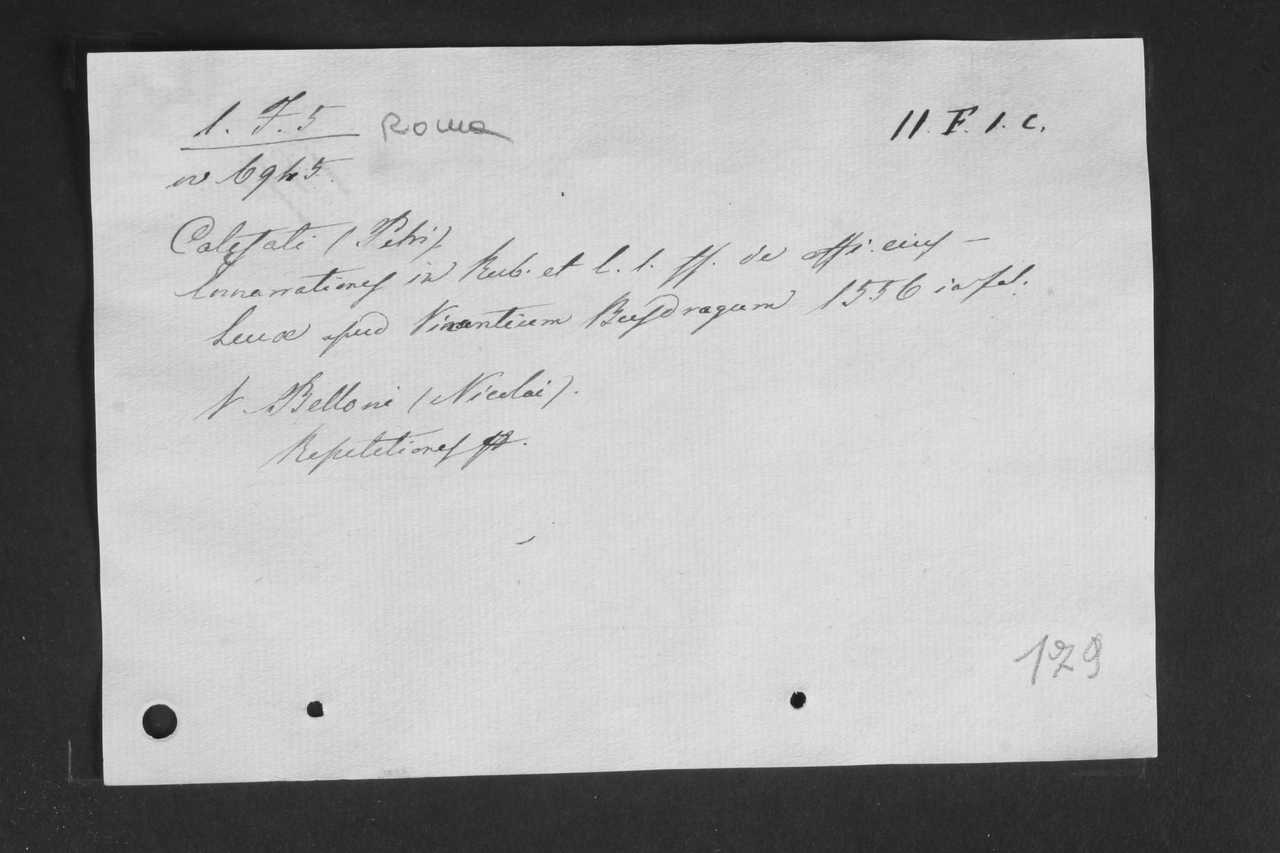 1. F. 5 Roma 11. F. 1. c.
6945.
Calefati (Petri)
in Rub. et l. 1. ff. de offi. eius –
Lucæ apud Vincentium Busdragum 1556 in fol.
V. Belloni (Nicolai).
Repetitiones
179